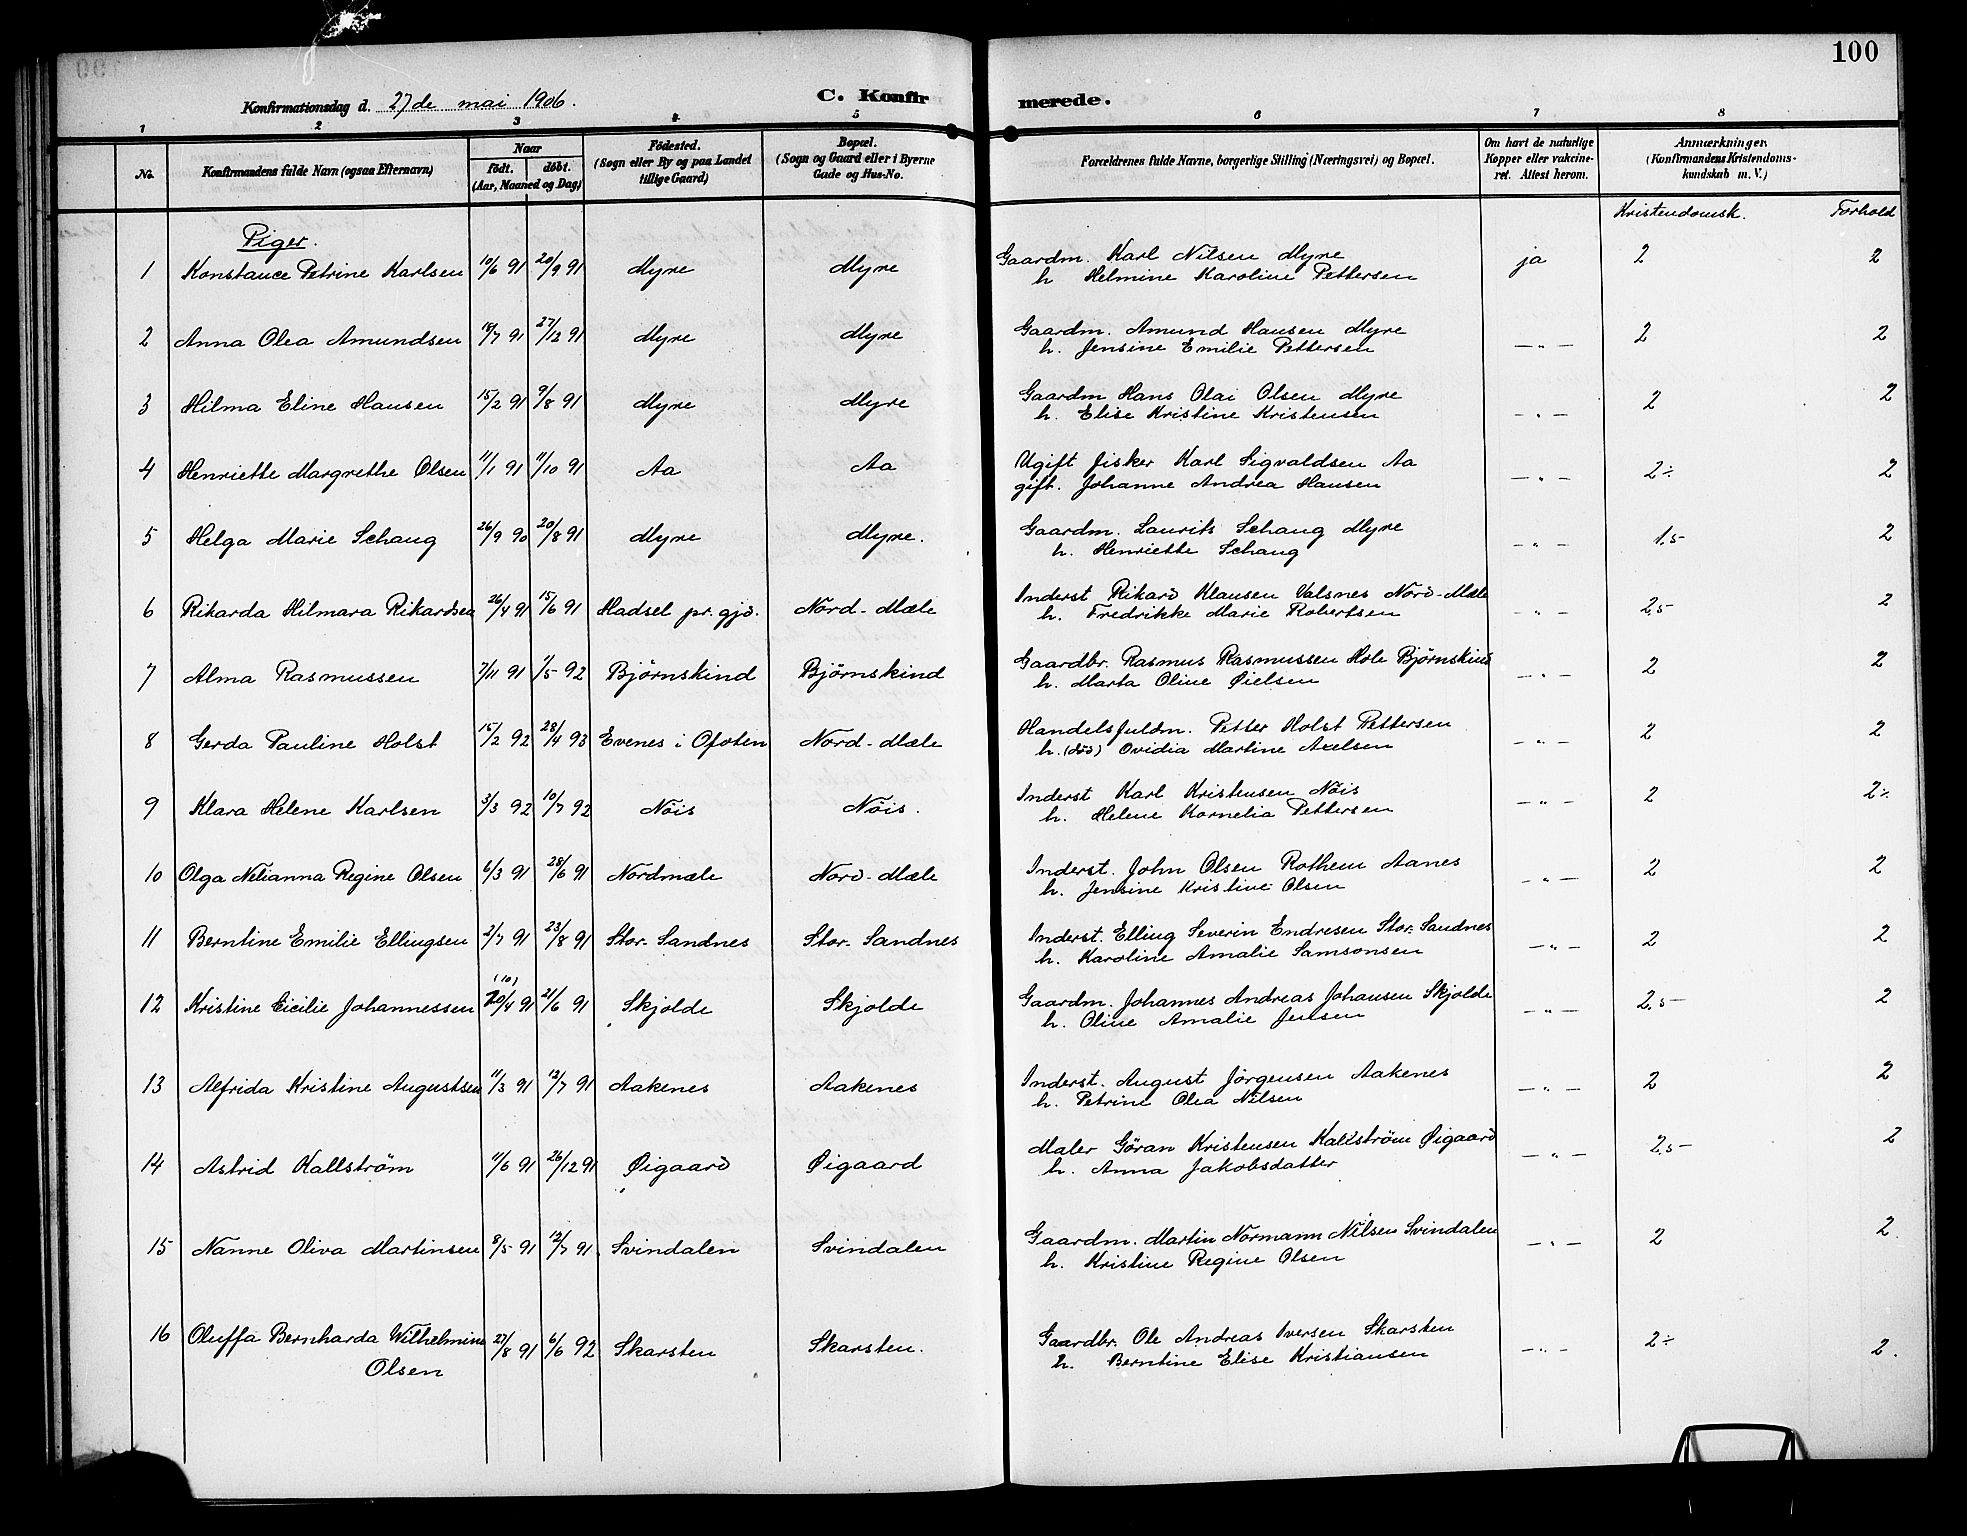 100
Konfirmationsdag d. 27de mai 1906.
C. Konfirmerede.
1 2 3 4 5 6 7 8
No.
Konfirmandens fulde Navn (ogsaa Efternavn)
Naar
födt. döbt.
(Aar, Maaned og Dag)
Födested.
(Sogn eller By og paa Landet
tillige Gaard)
Bopæl.
(Sogn og Gaard eller i Byerne
Gade og Hus-No.
Forældrenes fulde Navne, borgerlige Stilling (Næringsvei) og Bopæl.
Om havt de naturlige
Kopper eller vakcine-
ret. Attest herom.
Anmærkninger.
(Konfirmandens Kristendoms-
kundskab m. V.)
Kristendomsk. Forhold
Piger.
1 Konstance Petrine Karlsen 10/6 91 20/9 91 Myre Myre Gaardm. Karl Nilsen Myre ja 2 2
h Helmine Karoline Pettersen
2 Anna Olea Amundsen 18/7 91 27/12 91 Myre Myre Gaardm. Amund Hansen Myre —"— 2 2
h. Jensine Emilie Pettersen
3 Hilma Eline Hansen 15/2 91 9/8 91 Myre Myre Gaardm Hans Olai Olsen Myre —"— 2 2
h. Elise Kristine Kristensen
4 Henriette Margrethe Olsen 11/1 91 11/10 91 Aa Aa Ugift fisker Karl Sigvaldsen Aa —"— 2÷ 2
gift. Johanne Andrea Hansen
5 Helga Marie Schang 26/9 90 20/8 91 Myre Myre. Gaardm. Laurits Schang Myre —"— 1.5 2
h. Henriette Schang
6 Rikarda Hilmara Rikardsen 26/4 91 15/6 91 Hadsel pr. gjd. Nord-Mæle Inderst Rikard Klausen Valsnes Nord-Mæle —"— 2.5 2
h. Fredrikke Marie Robertsen
7 Alma Rasmussen 7/11 91 1/5 92 Bjørnskind Bjørnskind Gaardbr. Rasmus Rasmussen Hole Bjørnskind —"— 2 2
h. Marta Oline Øielsen
8 Gerda Pauline Holst 15/2 92 28/4 93 Evenes i Ofoten Nord-Mæle Handelsfuldm. Petter Holst Pettersen —"— 2 2
h. (död) Ovidia Martine Axelsen
9 Klara Helene Karlsen 3/3 92 10/7 92 Nöis Nöis. Inderst Karl Kristensen Nöis —"— 2 2÷
h. Helene Kornelia Pettersen
10 Olga Nelianna Regine Olsen 6/3 91 28/6 91 Nordmæle Nord-Mæle Inderst. John Olsen Rothem Aanes —"— 2 2
h. Jensine Kristine Olsen
11 Berntine Emilie Ellingsen 2/7 91 23/8 91 Stor. Sandnes Stor. Sandnes Inderst. Elling Severin Endresen Stor. Sandnes —"— 2 2
h. Karoline Amalie Samsonsen
(10)
12 Kristine Cicilie Johannessen 20/4 91 21/6 91 Skjolde Skjolde Gaardm. Johannes Andreas Johansen Skjolde —"— 2.5 2
h. Oline Amalie Jensen
13 Alfrida Kristine Augustsen 11/3 91 12/7 91 Aakenes Aakenes Inderst. August Jörgensen Aakenes —"— 2 2
h. Petrine Olea Nilsen
14 Astrid Kallström 11/6 91 26/12 91 Øigaard Øigaard Maler Göran Kristensen Kallström Øigaard —"— 2.5 2
h. Anna Jakobsdatter
15 Nanne Oliva Martinsen 8/5 91 12/7 91 Svindalen Svindalen Gaardm. Martin Normann Nilsen Svindalen —"— 2 2.
h. Kristine Regine Olsen
16 Oluffa Bernharda Wilhelmine 27/8 91 6/6 92 Skarsten Skarsten. Gaardbr. Ole Andreas Iversen Skarsten —"— 2÷ 2.
Olsen h. Berntine Elise Kristiansen